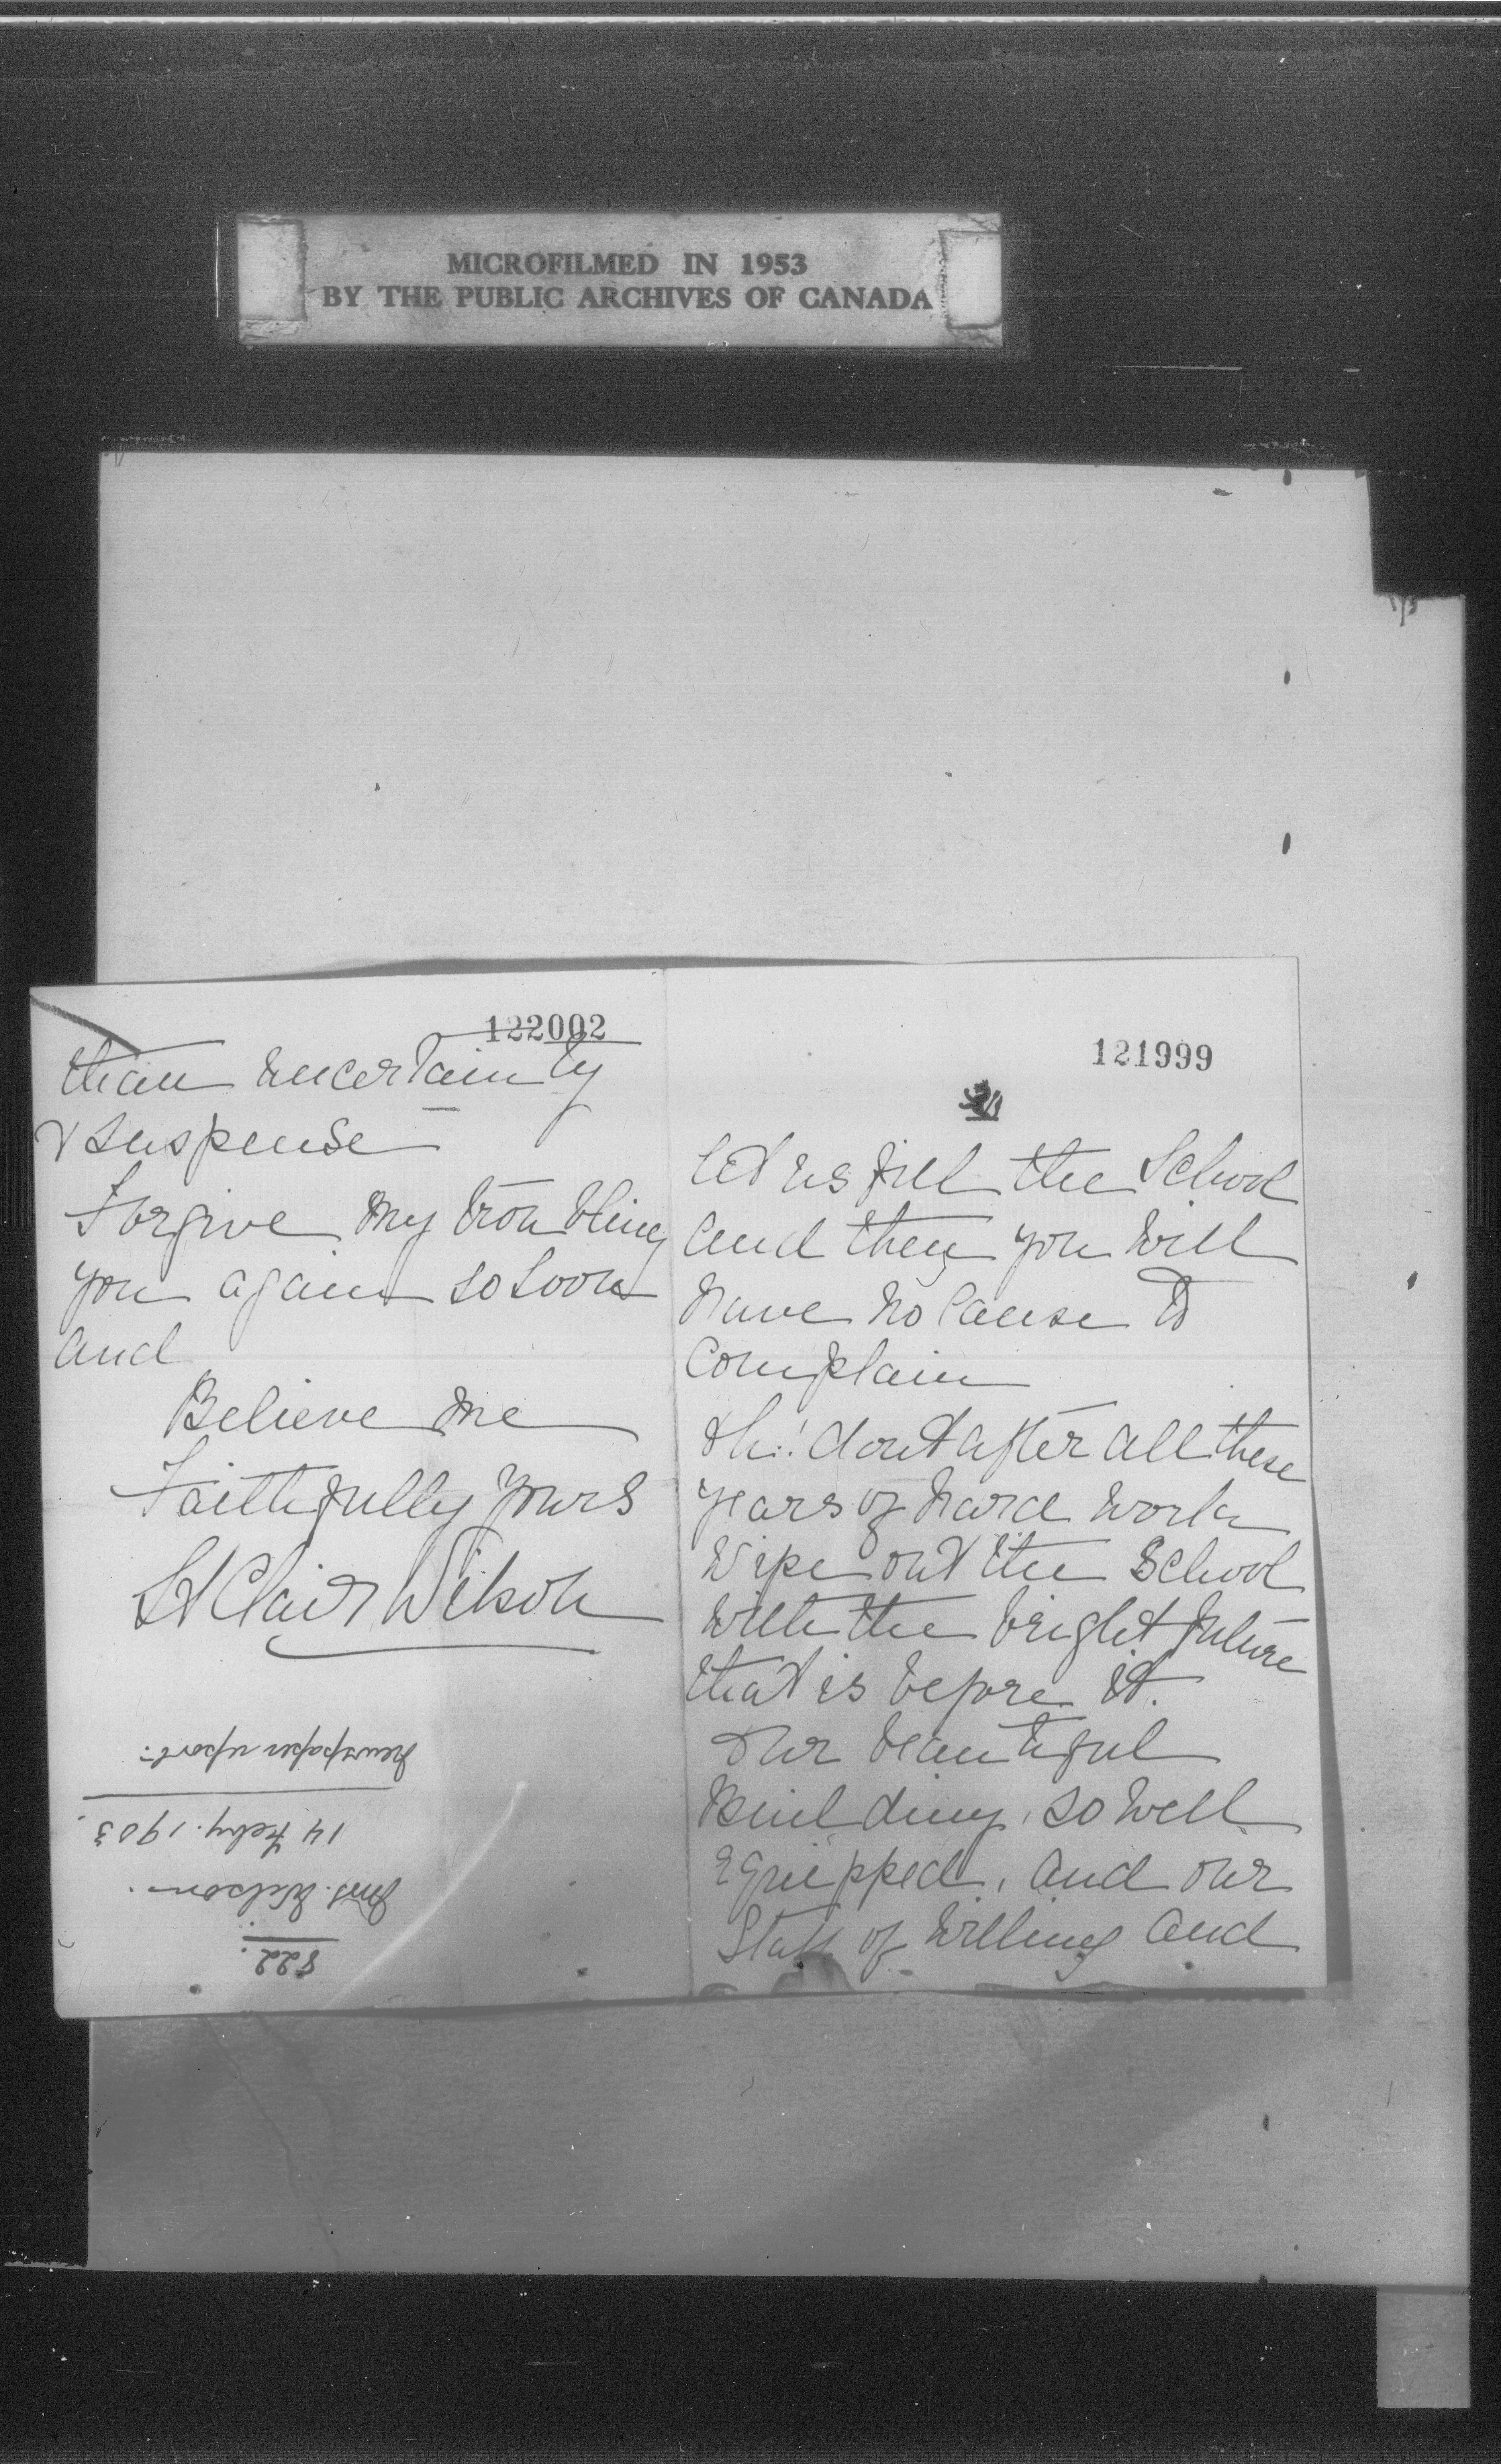 MICROFILMED IN 1953
BY THE PUBLIC ARCHIVES OF CANADA
122002
than uncertainty
& suspense
Forgive my troubling
you again so soon
and
Believe me
Faithfully Yours
St Clair Wilson
822.
Mrs. Wilson.
14 Feby. 1903.
Newspaper report.
121999
let us fill the School
and then you will
have no cause to
complain
Oh! dont after all these
years of hard work
wipe out the School
with the bright future
that is before it.
Our beautiful
Building, so well
equipped, and our
Staff of willing and